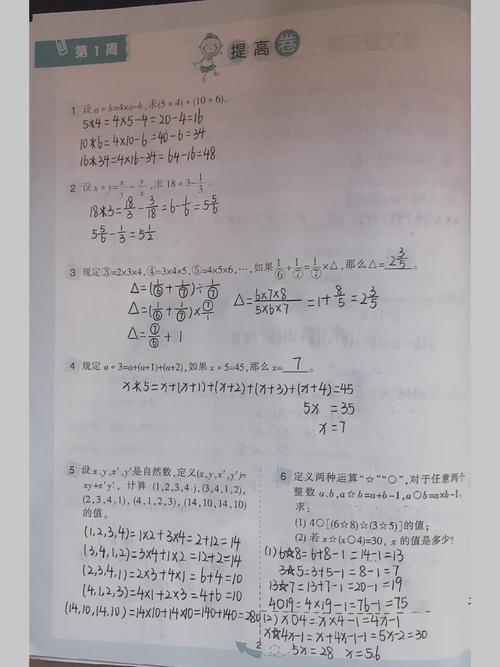 第1周
提高卷
1 设a*b=4×a-b,求(5*4)*(10*6)。
5*4=4×5-4=20-4=16
10*6=4×10-6=40-6=34
16*34=4×16-34=64-16=48
2 设x*y=x/y-y/x,求18*3-1/3。
18*3=18/3-3/18=6-1/6=5 5/6
5 5/6-1/3=5 1/2
3 规定③=2×3×4,④=3×4×5,⑤=4×5×6,…,如果1/⑥+1/⑦=1/⑦×△,那么△=2 3/5。
△=(1/⑥+1/⑦)÷1/⑦
△=(1/⑥+1/⑦)×⑦/1
△=⑦/⑥+1
△=6×7×8/5×6×7=1+8/5=2 3/5
4 规定a*3=a+(a+1)+(a+2),如果x*5=45,那么x=7。
x*5=x+(x+1)+(x+2)+(x+3)+(x+4)=45
5x=35
x=7
5 设x,y,x′,y′是自然数,定义(x,y,x′,y′)=
xy+x′y′, 计算(1,2,3,4),(3,4,1,2),
(2,3,4,1),(4,1,2,3),(14,10,14,10)
的值。
(1,2,3,4)=1×2+3×4=2+12=14
(3,4,1,2)=3×4+1×2=12+2=14
(2,3,4,1)=2×3+4×1=6+4=10
(4,1,2,3)=4×1+2×3=4+6=10
(14,10,14,10)=14×10+14×10=140+140=280
6 定义两种运算“☆”“○”,对于任意两个
整数a,b,a☆b=a+b-1,a○b=a×b-1。
求:
(1) 4○[(6☆8)☆(3☆5)]的值;
(2) 若x☆(x○4)=30, x的值是多少?
(1) 6☆8=6+8-1=14-1=13
3☆5=3+5-1=8-1=7
13☆7=13+7-1=20-1=19
4○19=4×19-1=76-1=75
(2) x○4=x×4-1=4x-1
x☆4x-1=x+4x-1-1=5x-2=30
5x=28 x=5.6
2